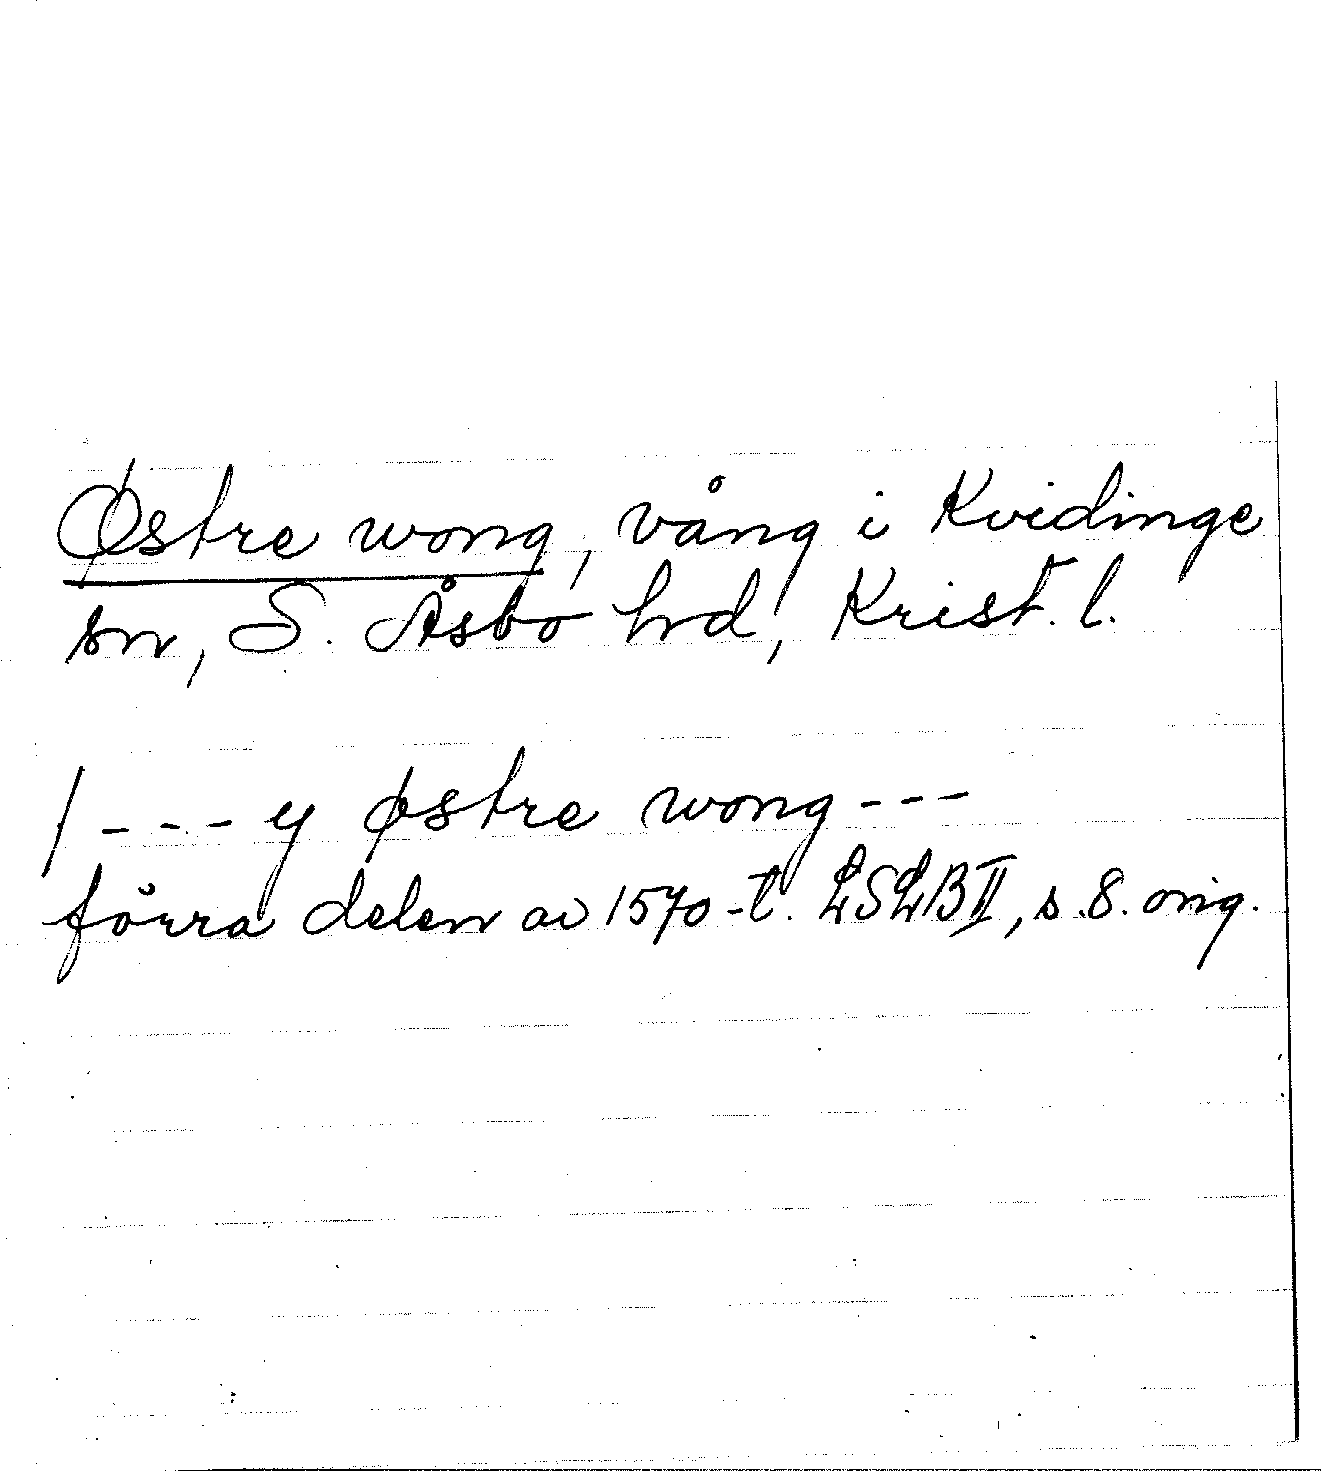 Østre wong, vång i Kvidinge
sn, S. Åsbo hd, Krist. l.
/ - - - y østre wong - - -
förra delen av 1570-t. LSLB II, s. 8. orig.